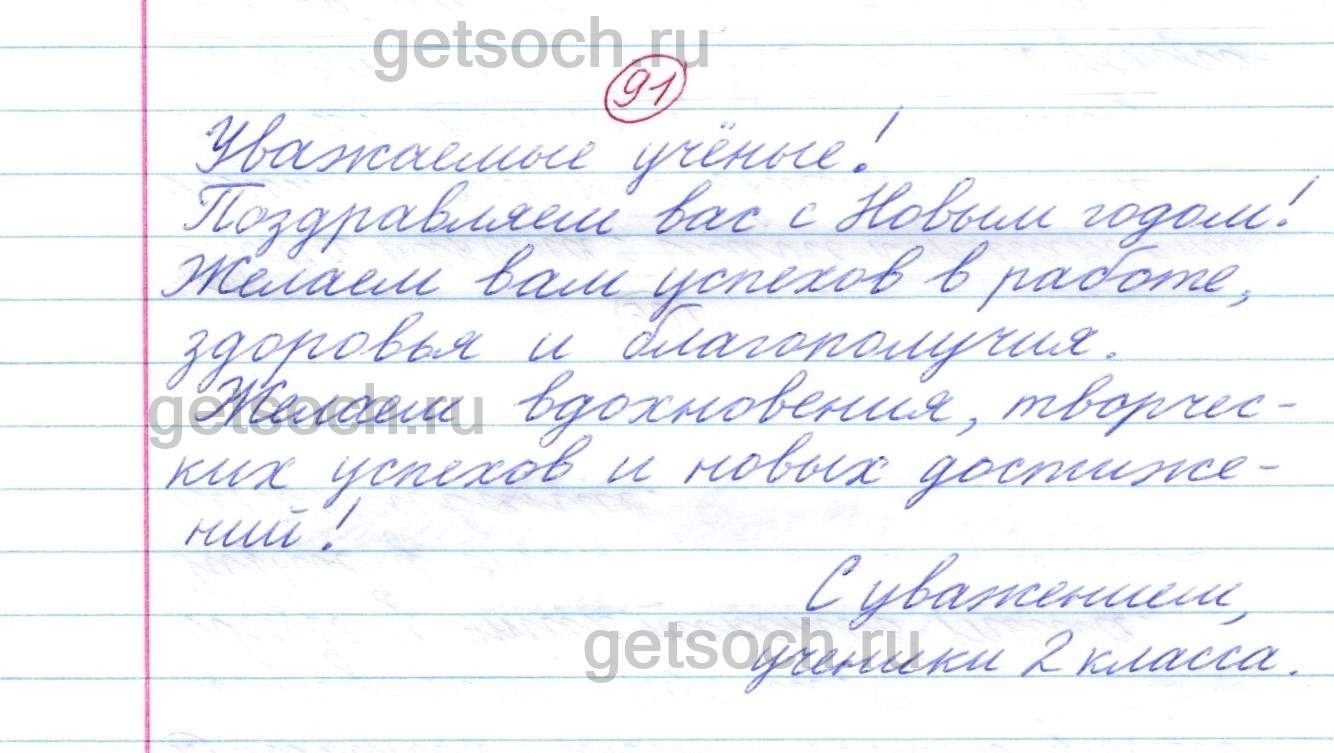 getsoch.ru
91
Уважаемые учёные!
Поздравляем вас с Новым годом!
Желаем вам успехов в работе,
здоровья и благополучия.
getsoch.ru
Желаем вдохновения, творчес-
ких успехов и новых достиже-
ний!
С уважением,
getsoch.ru
ученики 2 класса.